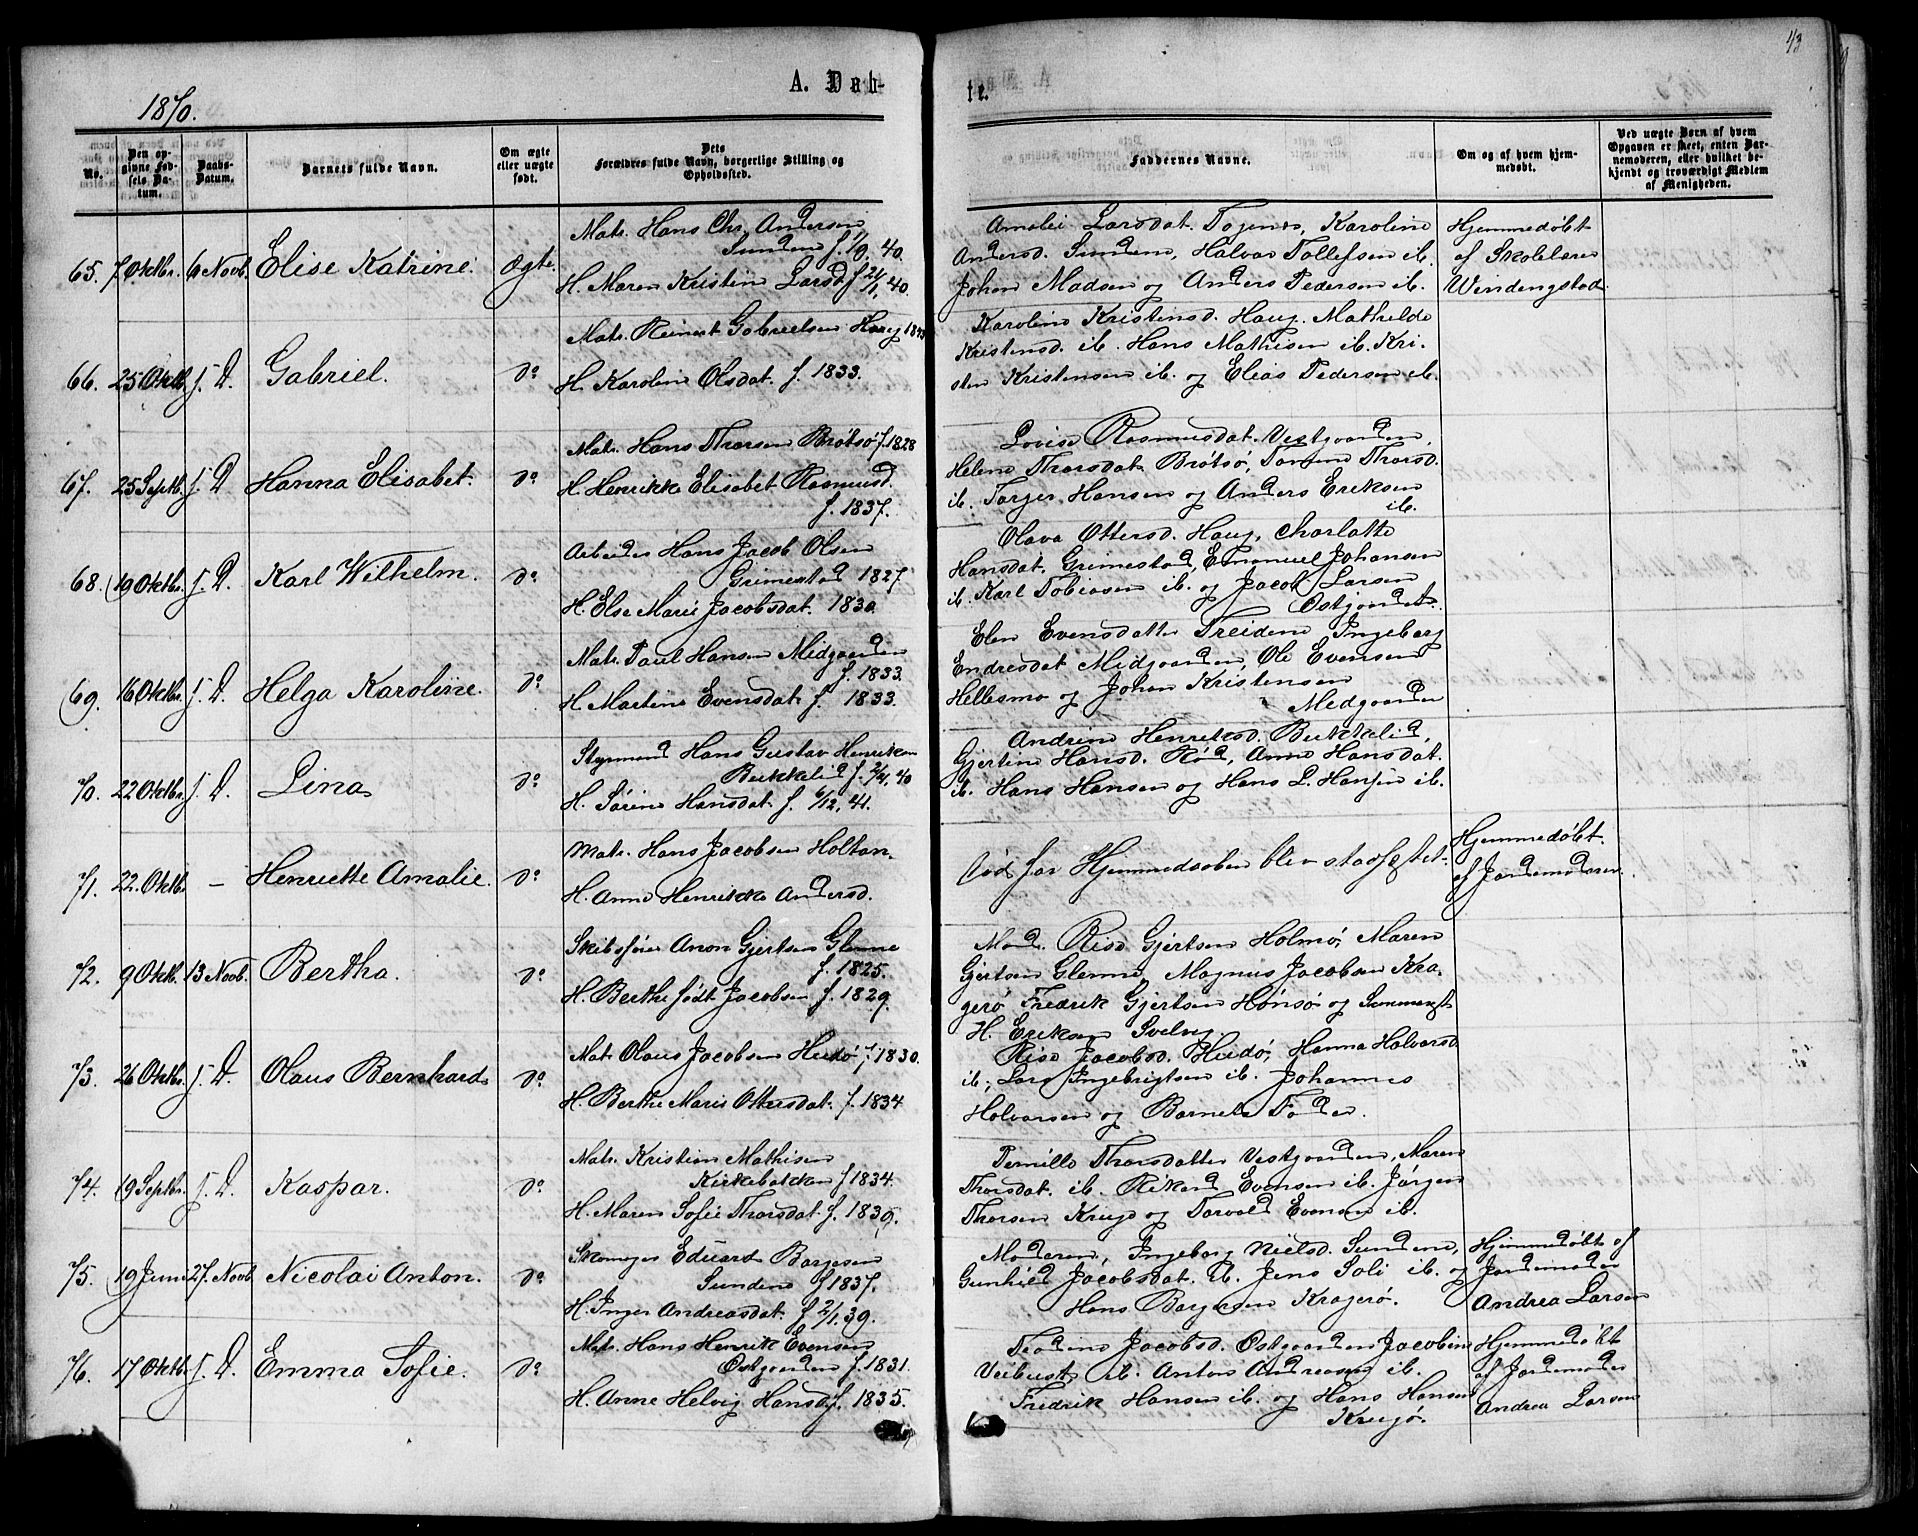 43
1870.
A. Døb-
te.
No.
Den op-
givne Fød-
sels Da-
tum.
Daabs-
Datum.
Barnets fulde Navn.
Om ægte
eller uægte
født.
Dets
Forældres fulde Navn, borgerlige Stilling og
Opholdssted.
Faddernes Navne.
Om og af hvem hjem-
medøbt.
Ved uægte Børn af hvem
Opgaven er skeet, enten Bar-
nemoderen, eller hvilket be-
kjendt og troværdigt Medlem
af Menigheden.
65. 7 Oktbr. 6 Novb. Elise Katrine. Ægte.
Mats. Hans Chr. Andersen
Sundene f. 1/9, 40.
H. Maren Kristin Larsd f 21/1, 40.
Amalie Larsdat. Karoline
Andersd. Sundene, Halvor Tollefsen ib.
Johan Madsen og Anders Pedersen ib.
Hjemmedøbt
af Skolelærer
Windengstad
66. 25 Oktb. s. D. Gabriel. do
Mats. Reinert Gabrielsen Haug 1843
H. Karoline Olsdat. f. 1833.
Karoline Kristensd. Haug, Mathilde
Kristensd. ib. Hans Mathisen ib. Kri-
sten Kristensen ib. og Elias Pedersen ib.
67. 25 Septb. s. D Hanna Elisabet. do
Mats. Hans Thorsen Brøtsø f. 1828
H. Henrikke Elisabet Rasmusd.
f. 1837.
Lovise Rasmusdat. Vestgaarden,
Helene Thorsdat. Brøtsø, Thorsd.
ib. Torger Hansen og Anders Eriksen
ib.
68. 19 Oktbr. s. D. Karl Wilhelm. do
Arbeider Hans Jacob Olsen
Grimestad 1827.
H. Else Marie Jacobsdat. 1830.
Olava Ottersd. Haug, Charlotte
Hansdat. Grimestad, Emanuel Johansen
ib. Karl Tobiasen ib. og Jacob Larsen
Østgaarden.
69. 16 Oktbr. s. D. Helga Karoline. do
Mats. Paul Hansen Midgaarden
f. 1833.
H. Martine Evensdat f. 1833.
Elen Evensdatter Treidene Ingeborg
Endresdat Midgaarden, Ole Evensen
Hellesmo og Johan Kristensen
Midgaarden
70. 22 Oktbr. s. D. Lina do
Styrmand Hans Gustav Henriksen
Bækkelid f. 2/4, 40
H. Sørine Hansdat f. 6/12, 41.
Andrine Henriksd. Bækkelid,
Gjertine Hansd. Rød, Anne Hansdat.
ib. Hans Hansen og Hans L. Hansen ib.
71. 22. Oktb. - Henriette Amalie. do
Mats. Hans Jacobsen Holtan.
H. Anne Henrikke Andersd.
Død før Hjemmedaaben blev stadfæstet.
Hjemmedøbt
af Jordemoderen.
72. 9 Oktb. 13 Novb. Bertha. do
Skibsfører Anon Gjertsen Glenne
f. 1825.
H. Berthe født Jacobsen f. 1829.
Mad. Rise Gjertsen Holmø, Maren
Gjertsen Glenne, Magnus Jacobsen Kra-
gerø, Fredrik Gjertsen Hønsø og
H. Eriksen Svelvig.
73. 26 Oktbr. s. D. Olaus Bernhard. do
Mats Olaus Jacobsen Huidø f. 1830.
H. Berthe Marie Ottersdat. f. 1834
Rise Jacobsd. Huidø, Hanna Halvorsd
ib., Lars Ingebrigtsen ib. Johannes
Halvorsen og Barnets Fader.
74. 19 Septbr. s. D. Kaspar. do
Mats. Kristian Mathisen
Kirkebakken f 1834.
H. Maren Sofie Thorsdat f. 1839.
Pernille Thorsdatter Vestgaarden, Maren
Thorsdat. ib. Rikard Evensen ib. Jørgen
Thorsen Krugø og Torvald Evensen ib.
75. 19 Juni 27. Novb Nicolai Anton. do
Skomager Eduard Borgesen
Sundene f 1837.
H. Inger Andreasdat. f 2/1, 39.
Moderen, Ingeborg Nielsd. Sundene,
Gunhild Jacobsdat. ib. Jens Soli ib. og
Hans Borgersen Kragerø.
Hjemmedøbt af
Jordemoder
Andrea Larsen
76. 17 Oktb. s. D. Emma Sofie. do
Mats. Hans Henrik Evensen
Østgaarden f. 1831.
H. Anne Helvig Hansd f. 1835.
Jacobsd. Østgaarden Jacobin
ib. Anton Andreasen ib.
Fredrik Hansen ib. og Hans Hansen
Krugø.
Hjemmedøbt
af Jordemoder
Andrea Larsen